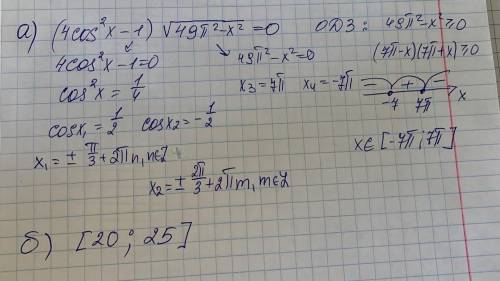 а) (4cos²x-1) √(49π²-x²) = 0   ОДЗ: 49π²-x² ≥ 0
4cos²x-1=0   49π²-x²=0   (7π-x)(7π+x) ≥ 0
cos²x = 1/4   x₃ = 7π   x₄ = -7π   - + -
-7   7π   x
cosx₁ = 1/2   cosx₂ = -1/2   x∈[-7π; 7π]
x₁ = ± π/3 + 2πn, n∈Z
x₂ = ± 2π/3 + 2πm, m∈Z
б) [20; 25]